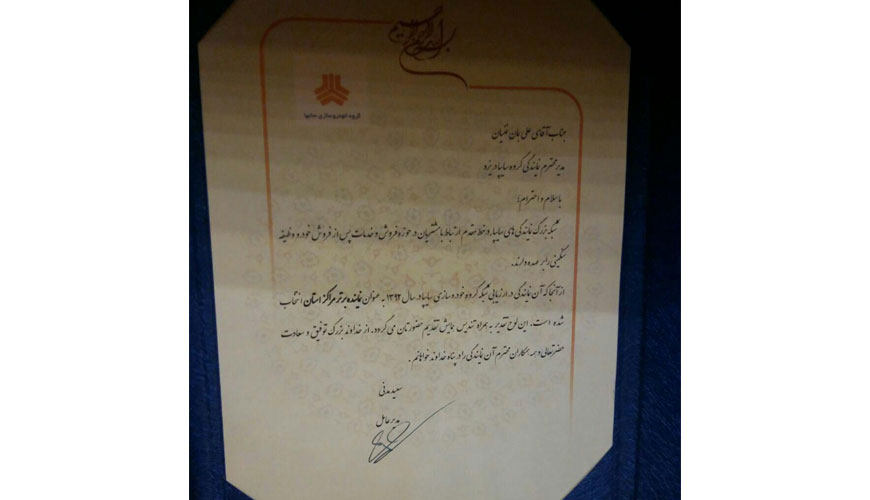 بسم الله الرحمن الرحیم
گروه خودروسازی سایپا
جناب آقای علی
مدیر محترم نمایندگی گروه سایپا در یزد
با سلام و احترام؛
شبکه بزرگ نمایندگی های سایپا، در خط مقدم ارتباط با مشتریان در حوزه فروش و خدمات پس از فروش خودرو وظیفه
سنگینی را بر عهده دارند.
از آنجا که آن نمایندگی در ارزیابی شبکه گروه خودروسازی سایپا در سال ۱۳۹۲ به عنوان نماینده برتر مراکز استان انتخاب
شده است. این لوح تقدیر به همراه تندیس همایش تقدیم حضورتان می گردد. از خداوند بزرگ توفیق و سعادت
حضرتعالی و همه همکاران محترم آن نمایندگی را در پناه خداوند خواهانم.
سعید مدنی
مدیر عامل